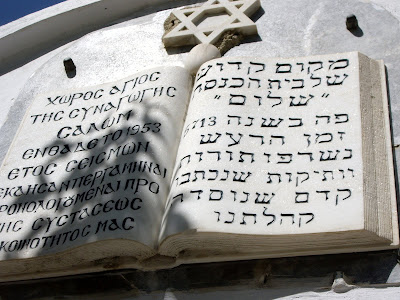 ΧΩΡΟΣ ΑΓΙΟΣ
ΤΗΣ ΣΥΝΑΓΩΓΗΣ
ΣΑΛΩΜ
ΕΝΘΑΔΕ ΤΟ 1953
ΕΤΟΣ ΣΕΙΣΜΩΝ
ΕΚΑΗΣΑΝ ΠΕΡΓΑΜΗΝΑΙ
ΧΡΟΝΟΛΟΓΟΥΜΕΝΑΙ ΠΡΟ
ΤΗΣ ΣΥΣΤΑΣΕΩΣ
ΚΟΙΝΟΤΗΤΟΣ ΜΑΣ
מקום קדוש
של בית הכנסת
"שלום"
פה בשנה 5713
זמן הרעש
נשרפו תורות
ויתיקות שנכתבו
קדם שנוסדה
קהלתנו